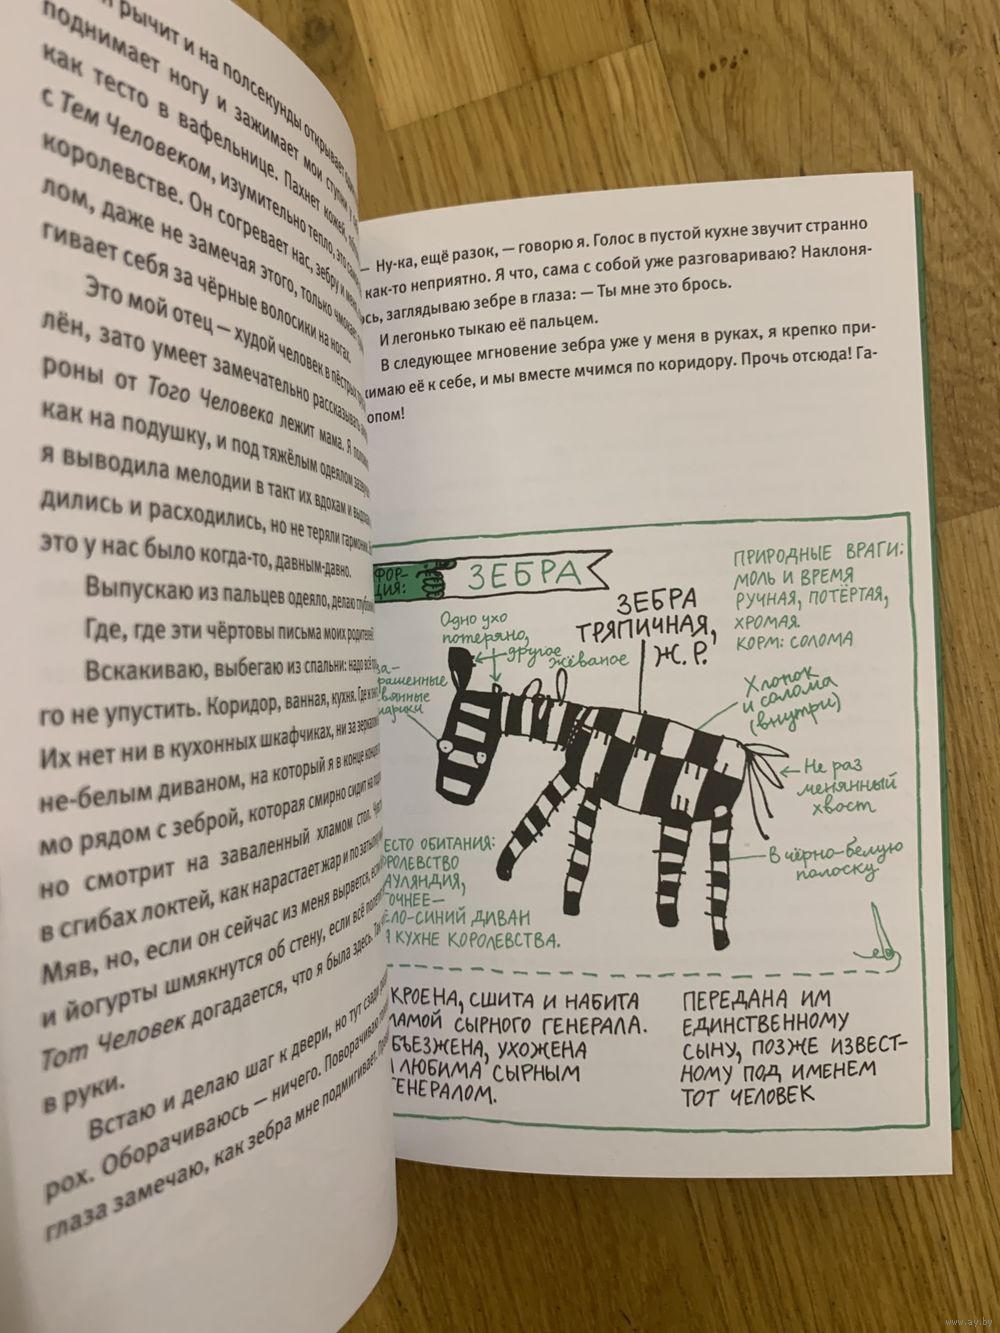 рычит и на полсекунды открывает
поднимает ногу и зажимает мои ступни
как тесто в вафельнице. Пахнет кожей,
с Тем Человеком, изумительно тепло, это
королевстве. Он согревает нас, зебру и меня
лом, даже не замечая этого, только чмокает
гивает себя за чёрные волосики на ногах.
Это мой отец — худой человек в пёстрых
лён, зато умеет замечательно рассказывать
роны от Того Человека лежит мама. Я
как на подушку, и под тяжёлым одеялом
я выводила мелодии в такт их вдохам и
дились и расходились, но не теряли гармонии.
это у нас было когда-то, давным-давно.
Выпускаю из пальцев одеяло, делаю
Где, где эти чёртовы письма моих родителей
Вскакиваю, выбегаю из спальни: надо всё
го не упустить. Коридор, ванная, кухня. Где
Их нет ни в кухонных шкафчиках, ни за
не-белым диваном, на который я в конце
мо рядом с зеброй, которая смирно сидит на
но смотрит на заваленный хламом стол.
в сгибах локтей, как нарастает жар и по
Мяв, но, если он сейчас из меня вырвется,
и йогурты шмякнутся об стену, если всё
Тот Человек догадается, что я была здесь.
в руки.
Встаю и делаю шаг к двери, но тут сзади
рох. Оборачиваюсь — ничего. Поворачиваю
глаза замечаю, как зебра мне подмигивает.
— Ну-ка, ещё разок, — говорю я. Голос в пустой кухне звучит странно
как-то неприятно. Я что, сама с собой уже разговариваю? Наклоня-
сь, заглядываю зебре в глаза: — Ты мне это брось.
И легонько тыкаю её пальцем.
В следующее мгновение зебра уже у меня в руках, я крепко при-
жимаю её к себе, и мы вместе мчимся по коридору. Прочь отсюда! Га-
опом!
ФОР-
ЦИЯ:
ЗЕБРА
ПРИРОДНЫЕ ВРАГИ:
МОЛЬ И ВРЕМЯ
РУЧНАЯ, ПОТЁРТАЯ,
ХРОМАЯ.
КОРМ: СОЛОМА
ЗЕБРА
ТРЯПИЧНАЯ,
Ж. Р.
Одно ухо
потеряно,
другое
жёваное
рашенные
Хлопок
и солома
(внутри)
Не раз
менянный
хвост
В чёрно-белую
полоску
ЕСТО ОБИТАНИЯ:
ОРОЛЕВСТВО
АУЛЯНДИЯ,
ОЧНЕЕ—
ЕЛО-СИНИЙ ДИВАН
А КУХНЕ КОРОЛЕВСТВА.
КРОЕНА, СШИТА И НАБИТА
АМОЙ СЫРНОГО ГЕНЕРАЛА.
БЪЕЗЖЕНА, УХОЖЕНА
ЛЮБИМА СЫРНЫМ
ЕНЕРАЛОМ.
ПЕРЕДАНА ИМ
ЕДИНСТВЕННОМУ
СЫНУ, ПОЗЖЕ ИЗВЕСТ-
НОМУ ПОД ИМЕНЕМ
ТОТ ЧЕЛОВЕК
www.ay.by